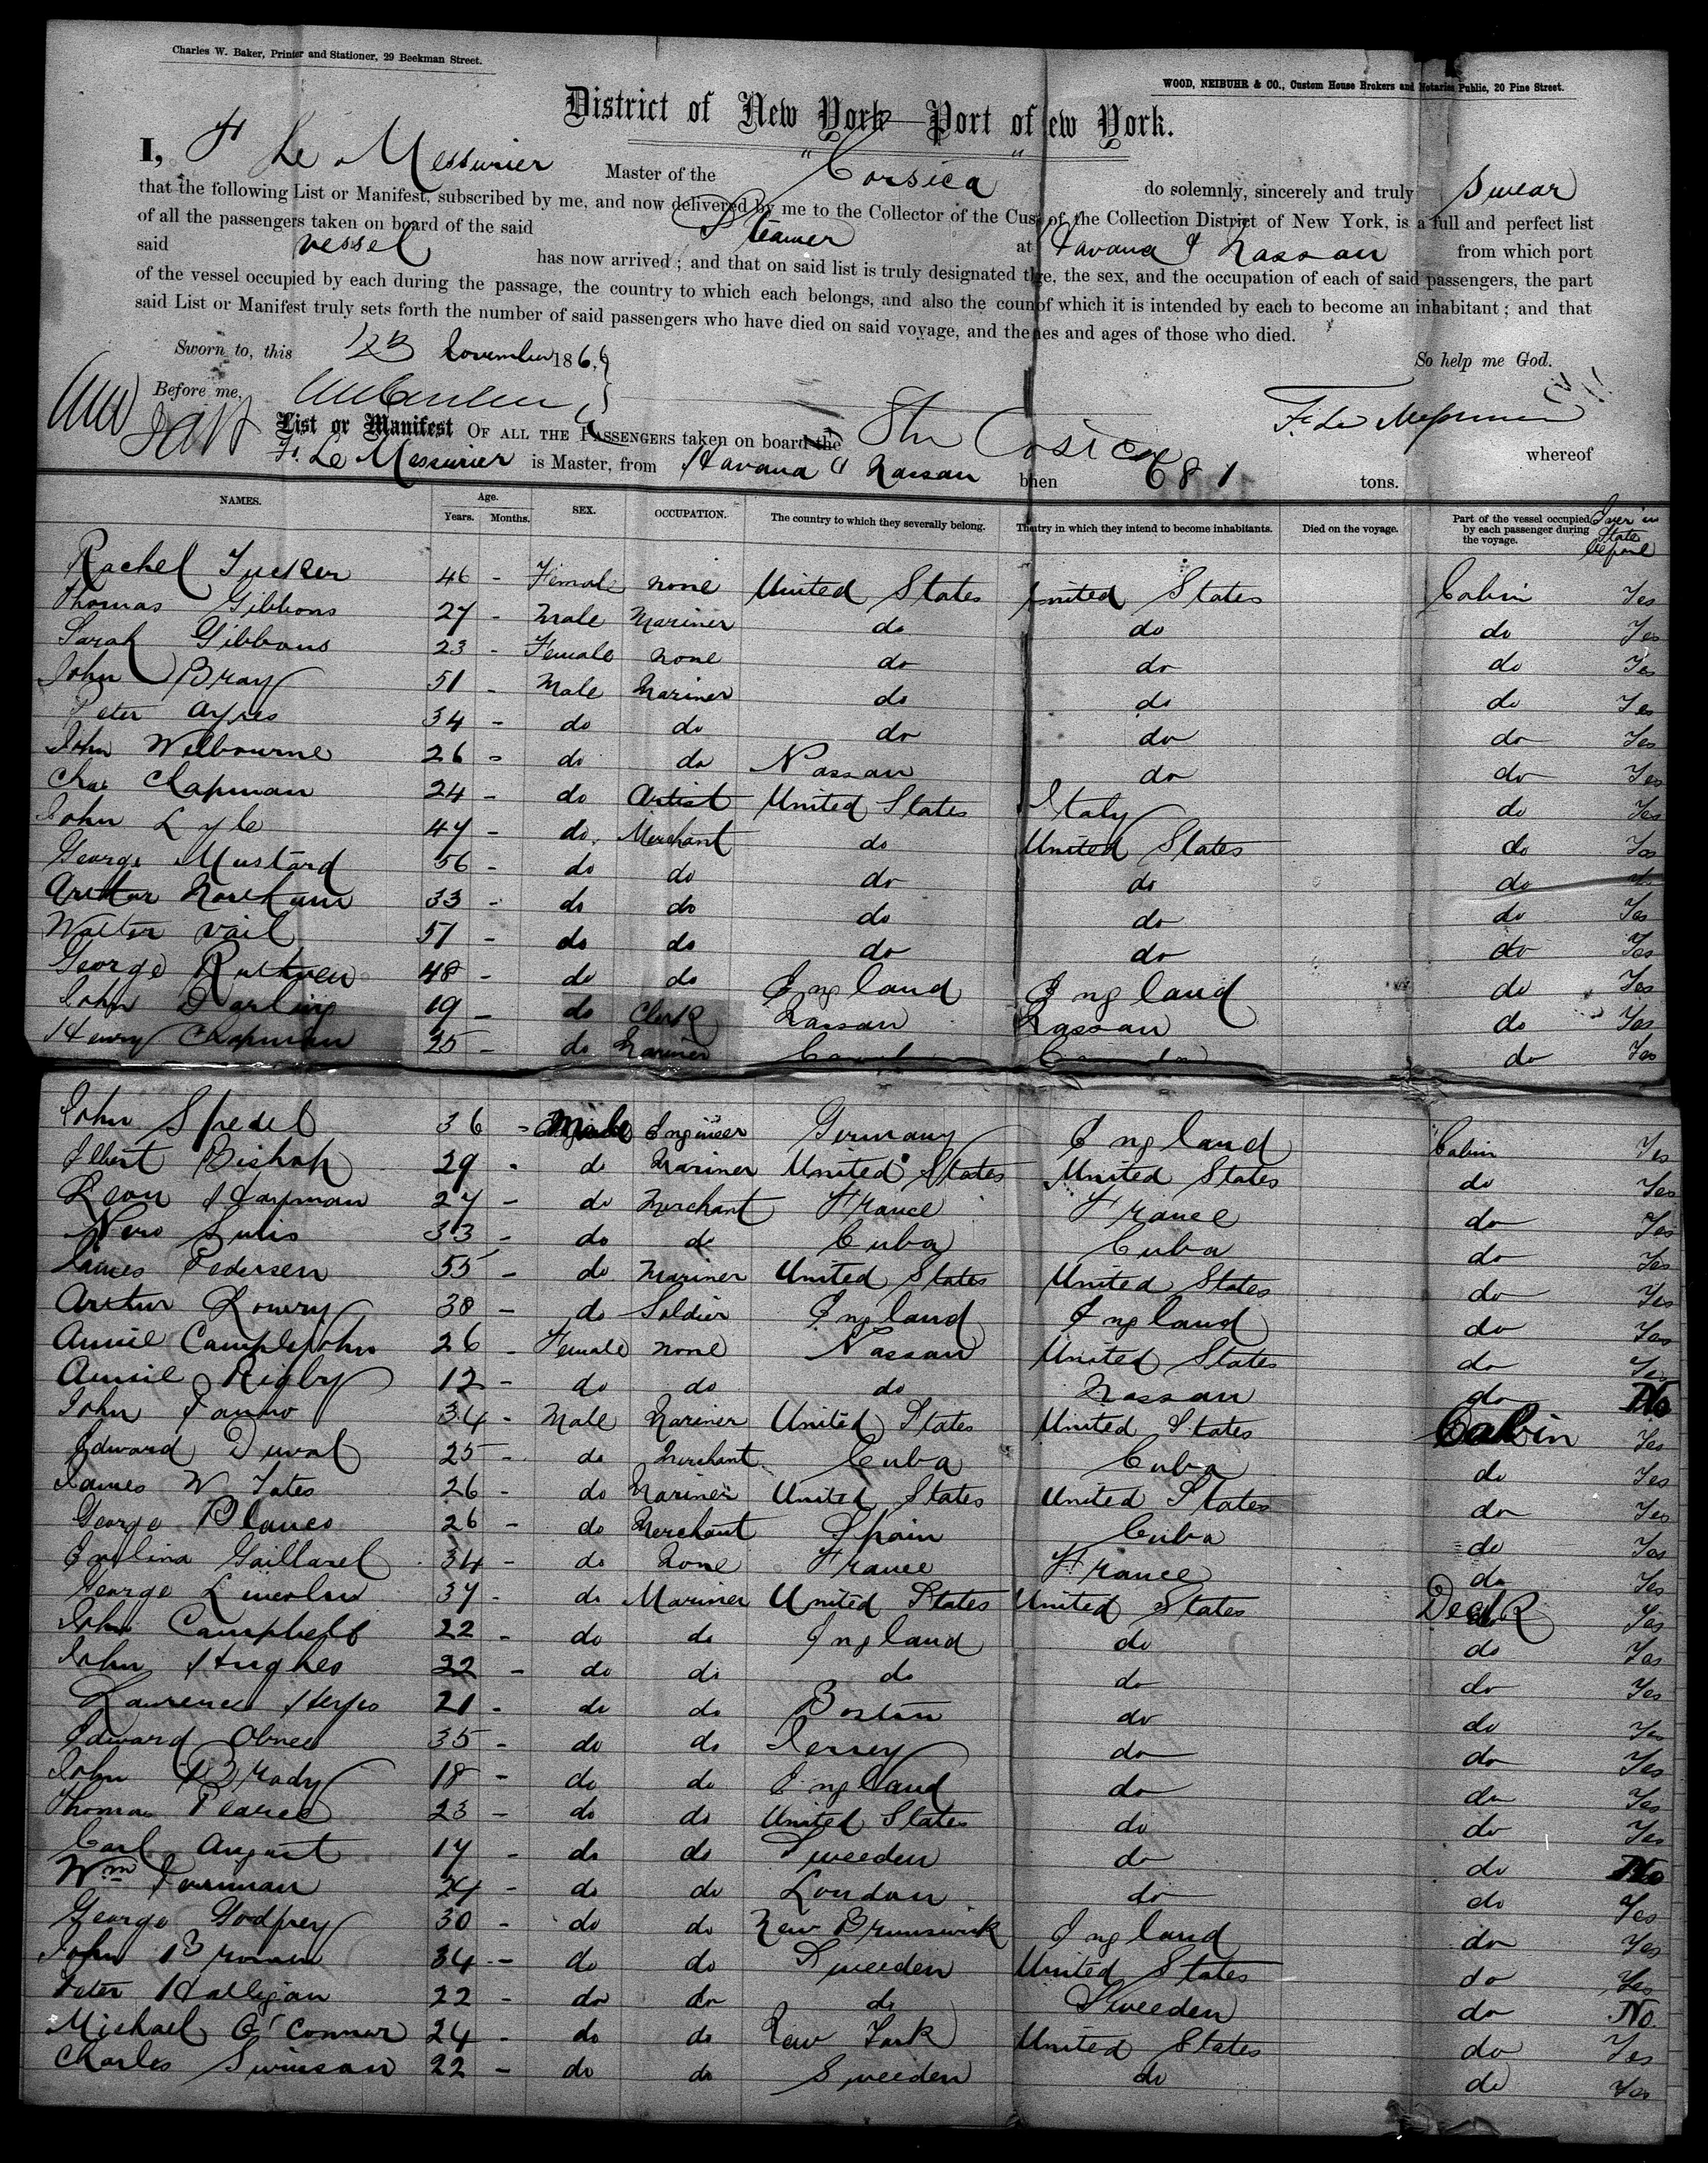 Charles W. Baker, Printer and Stationer, 29 Beekman Street.
WOOD, NEIBUHR & CO., Custom House Brokers and Notaries Public, 20 Pine Street.
District of New York—Port of ew York.
I, F Le Messurier Master of the "Corsica" do solemnly, sincerely and truly swear
that the following List or Manifest, subscribed by me, and now delivered by me to the Collector of the Cus of the Collection District of New York, is a full and perfect list
of all the passengers taken on board of the said Steamer at Havana & Nassau from which port
said vessel has now arrived; and that on said list is truly designated the, the sex, and the occupation of each of said passengers, the part
of the vessel occupied by each during the passage, the country to which each belongs, and also the coun of which it is intended by each to become an inhabitant; and that
said List or Manifest truly sets forth the number of said passengers who have died on said voyage, and the es and ages of those who died.
Sworn to, this November 186 So help me God.
Before me,
List or Manifest OF ALL THE PASSENGERS taken on board the Str Corsica whereof
F. Le Messurier is Master, from Havana & Nassau b hen 681 tons.
NAMES. Age. Years. Months. SEX. OCCUPATION. The country to which they severally belong. The ntry in which they intend to become inhabitants. Died on the voyage. Part of the vessel occupied by each passenger during the voyage. State before
Rachel Tucker 46 - Female none United States United States Cabin Yes
Thomas Gibbons 27 - Male Mariner do do do Yes
Sarah Gibbons 23 - Female none do do do Yes
John Bray 51 - Male Mariner do do do Yes
Peter Ayres 34 - do do do do do Yes
John Welbourne 26 - do do Nassau do do Yes
Chas Chapman 24 - do Artist United States Italy do Yes
John Lyle 47 - do Merchant do United States do Yes
George Mustard 56 - do do do do do
Arthur 33 - do do do do do Yes
Walter Vail 51 - do do do do do Yes
George Ruthven 48 - do do England England do Yes
John Darling 19 - do Clerk Nassau Nassau do Yes
Henry Chapman 25 - do Mariner do Yes
John Spedel 36 - Male Engineer Germany England Cabin Yes
Bishop 29 - do Mariner United States United States do Yes
Leon Harpman 27 - do Merchant France France do Yes
33 - do do Cuba Cuba do Yes
James Pedersen 55 - do Mariner United States United States do Yes
Arthur Lowry 38 - do Soldier England England do Yes
Annie Camplejohn 26 - Female none Nassau United States do Yes
Annie Rigby 12 - do do do Nassau do No
John 34 - Male Mariner United States United States Cabin Yes
Edward Duval 25 - do Merchant Cuba Cuba do Yes
James W Yates 26 - do Mariner United States United States do Yes
George Blanco 26 - do Merchant Spain Cuba do Yes
Gaillard 34 - do None France France do Yes
George Lincoln 37 - do Mariner United States United States Deck Yes
John Campbell 22 - do do England do do Yes
John Hughes 22 - do do do do do Yes
Lawrence 21 - do do Boston do do Yes
Edward 35 - do do Jersey do do Yes
John Brady 18 - do do England do do Yes
Thomas Pearce 23 - do do United States do do Yes
Carl August 17 - do do Sweeden do do No
Wm 24 - do do London do do Yes
George Godfrey 30 - do do New Brunswick England do Yes
John Brown 34 - do do Sweeden United States do Yes
Peter Halligan 22 - do do do Sweeden do No
Michael O'Connor 24 - do do New York United States do Yes
Charles Swinson 22 - do do Sweeden do do Yes